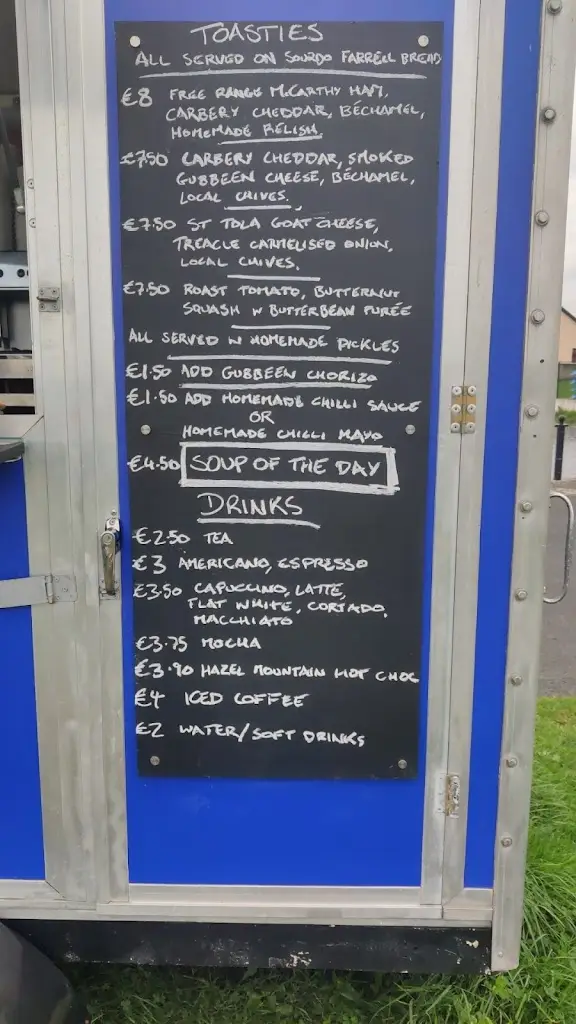 TOASTIES
ALL SERVED ON SOURDO FARRELL BREAD
€8 FREE RANGE McCARTHY HAM,
CARBERY CHEDDAR, BÉCHAMEL,
HOMEMADE RELISH.
€7.50 CARBERY CHEDDAR, SMOKED
GUBBEEN CHEESE, BÉCHAMEL,
LOCAL CHIVES.
€7.50 ST TOLA GOAT CHEESE,
TREACLE CARMELISED ONION,
LOCAL CHIVES.
€7.50 ROAST TOMATO, BUTTERNUT
SQUASH N BUTTERBEAN PURÉE
ALL SERVED W HOMEMADE PICKLES
€1.50 ADD GUBBEEN CHORIZO
€1.50 ADD HOMEMADE CHILLI SAUCE
OR
HOMEMADE CHILLI MAYO
€4.50 SOUP OF THE DAY
DRINKS
€2.50 TEA
€3 AMERICANO, ESPRESSO
€3.50 CAPUCCINO, LATTE,
FLAT WHITE, CORTADO,
MACCHIATO
€3.75 MOCHA
€3.90 HAZEL MOUNTAIN HOT CHOC
€4 ICED COFFEE
€2 WATER/SOFT DRINKS